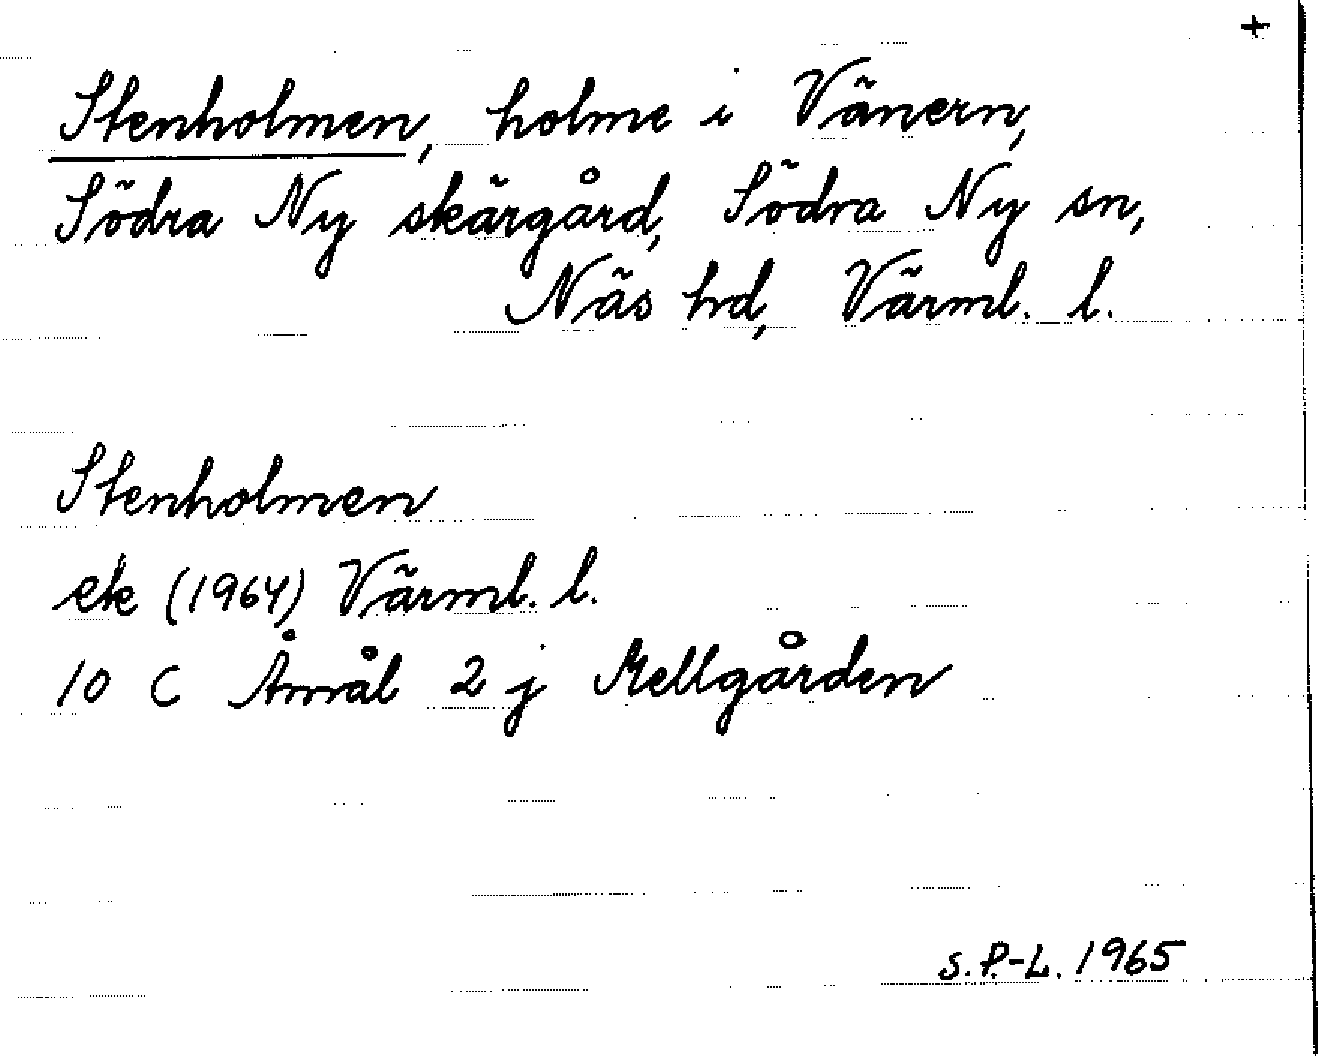 +
Stenholmen, holme i Vänern,
Södra Ny skärgård, Södra Ny sn,
Näs hd, Värml. l.
Stenholmen
ek (1964) Värml. l.
10 C Åmål 2 j Mellgården
S. P.-L. 1965